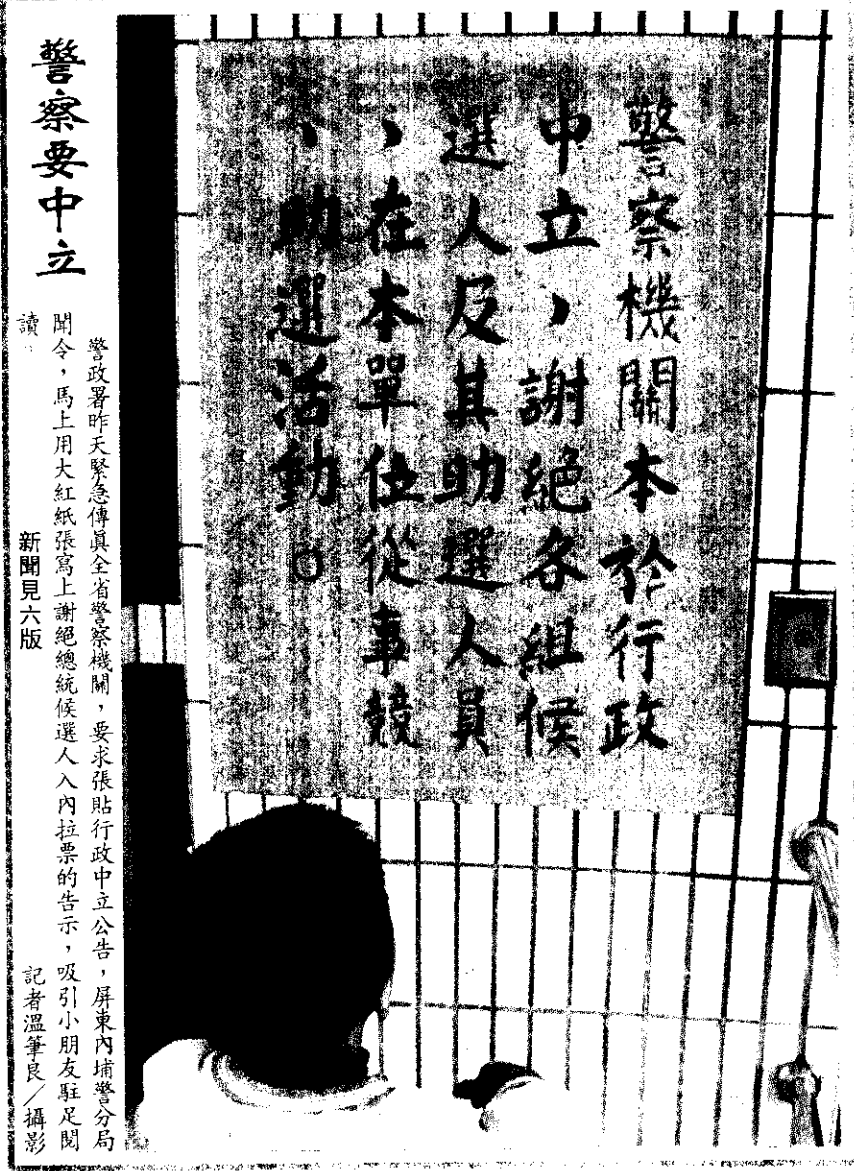 警察機關本於行政
中立，謝絕各組候
選人及其助選人員
，在本單位從事競
、助選活動。
警察要中立
警政署昨天緊急傳眞全省警察機關，要求張貼行政中立公告，屏東內埔警分局
聞令，馬上用大紅紙張寫上謝絕總統候選人入內拉票的告示，吸引小朋友駐足閱
讀。
新聞見六版
記者溫筆良／攝影